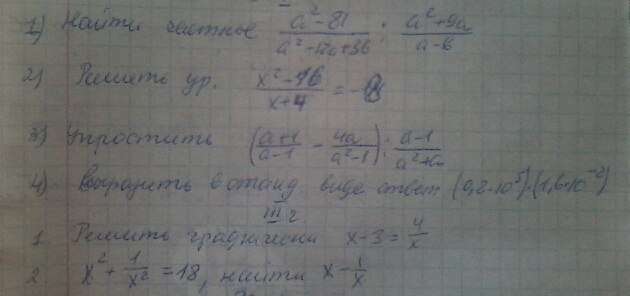 1) Найти частное (a²-81)/(a²-12a+36) : (a²+9a)/(a-6)
2) Решить ур. (x²-16)/(x+4) = -8
3) Упростить ((a+1)/(a-1) - 4a/(a²-1)) : (a-1)/(a²+a)
4) Выразить в станд виде ответ (0,2·10⁵)·(1,6·10⁻²)
III г.
1 Решить графически x-3 = 4/x
2 x² + 1/x² = 18, найти x - 1/x